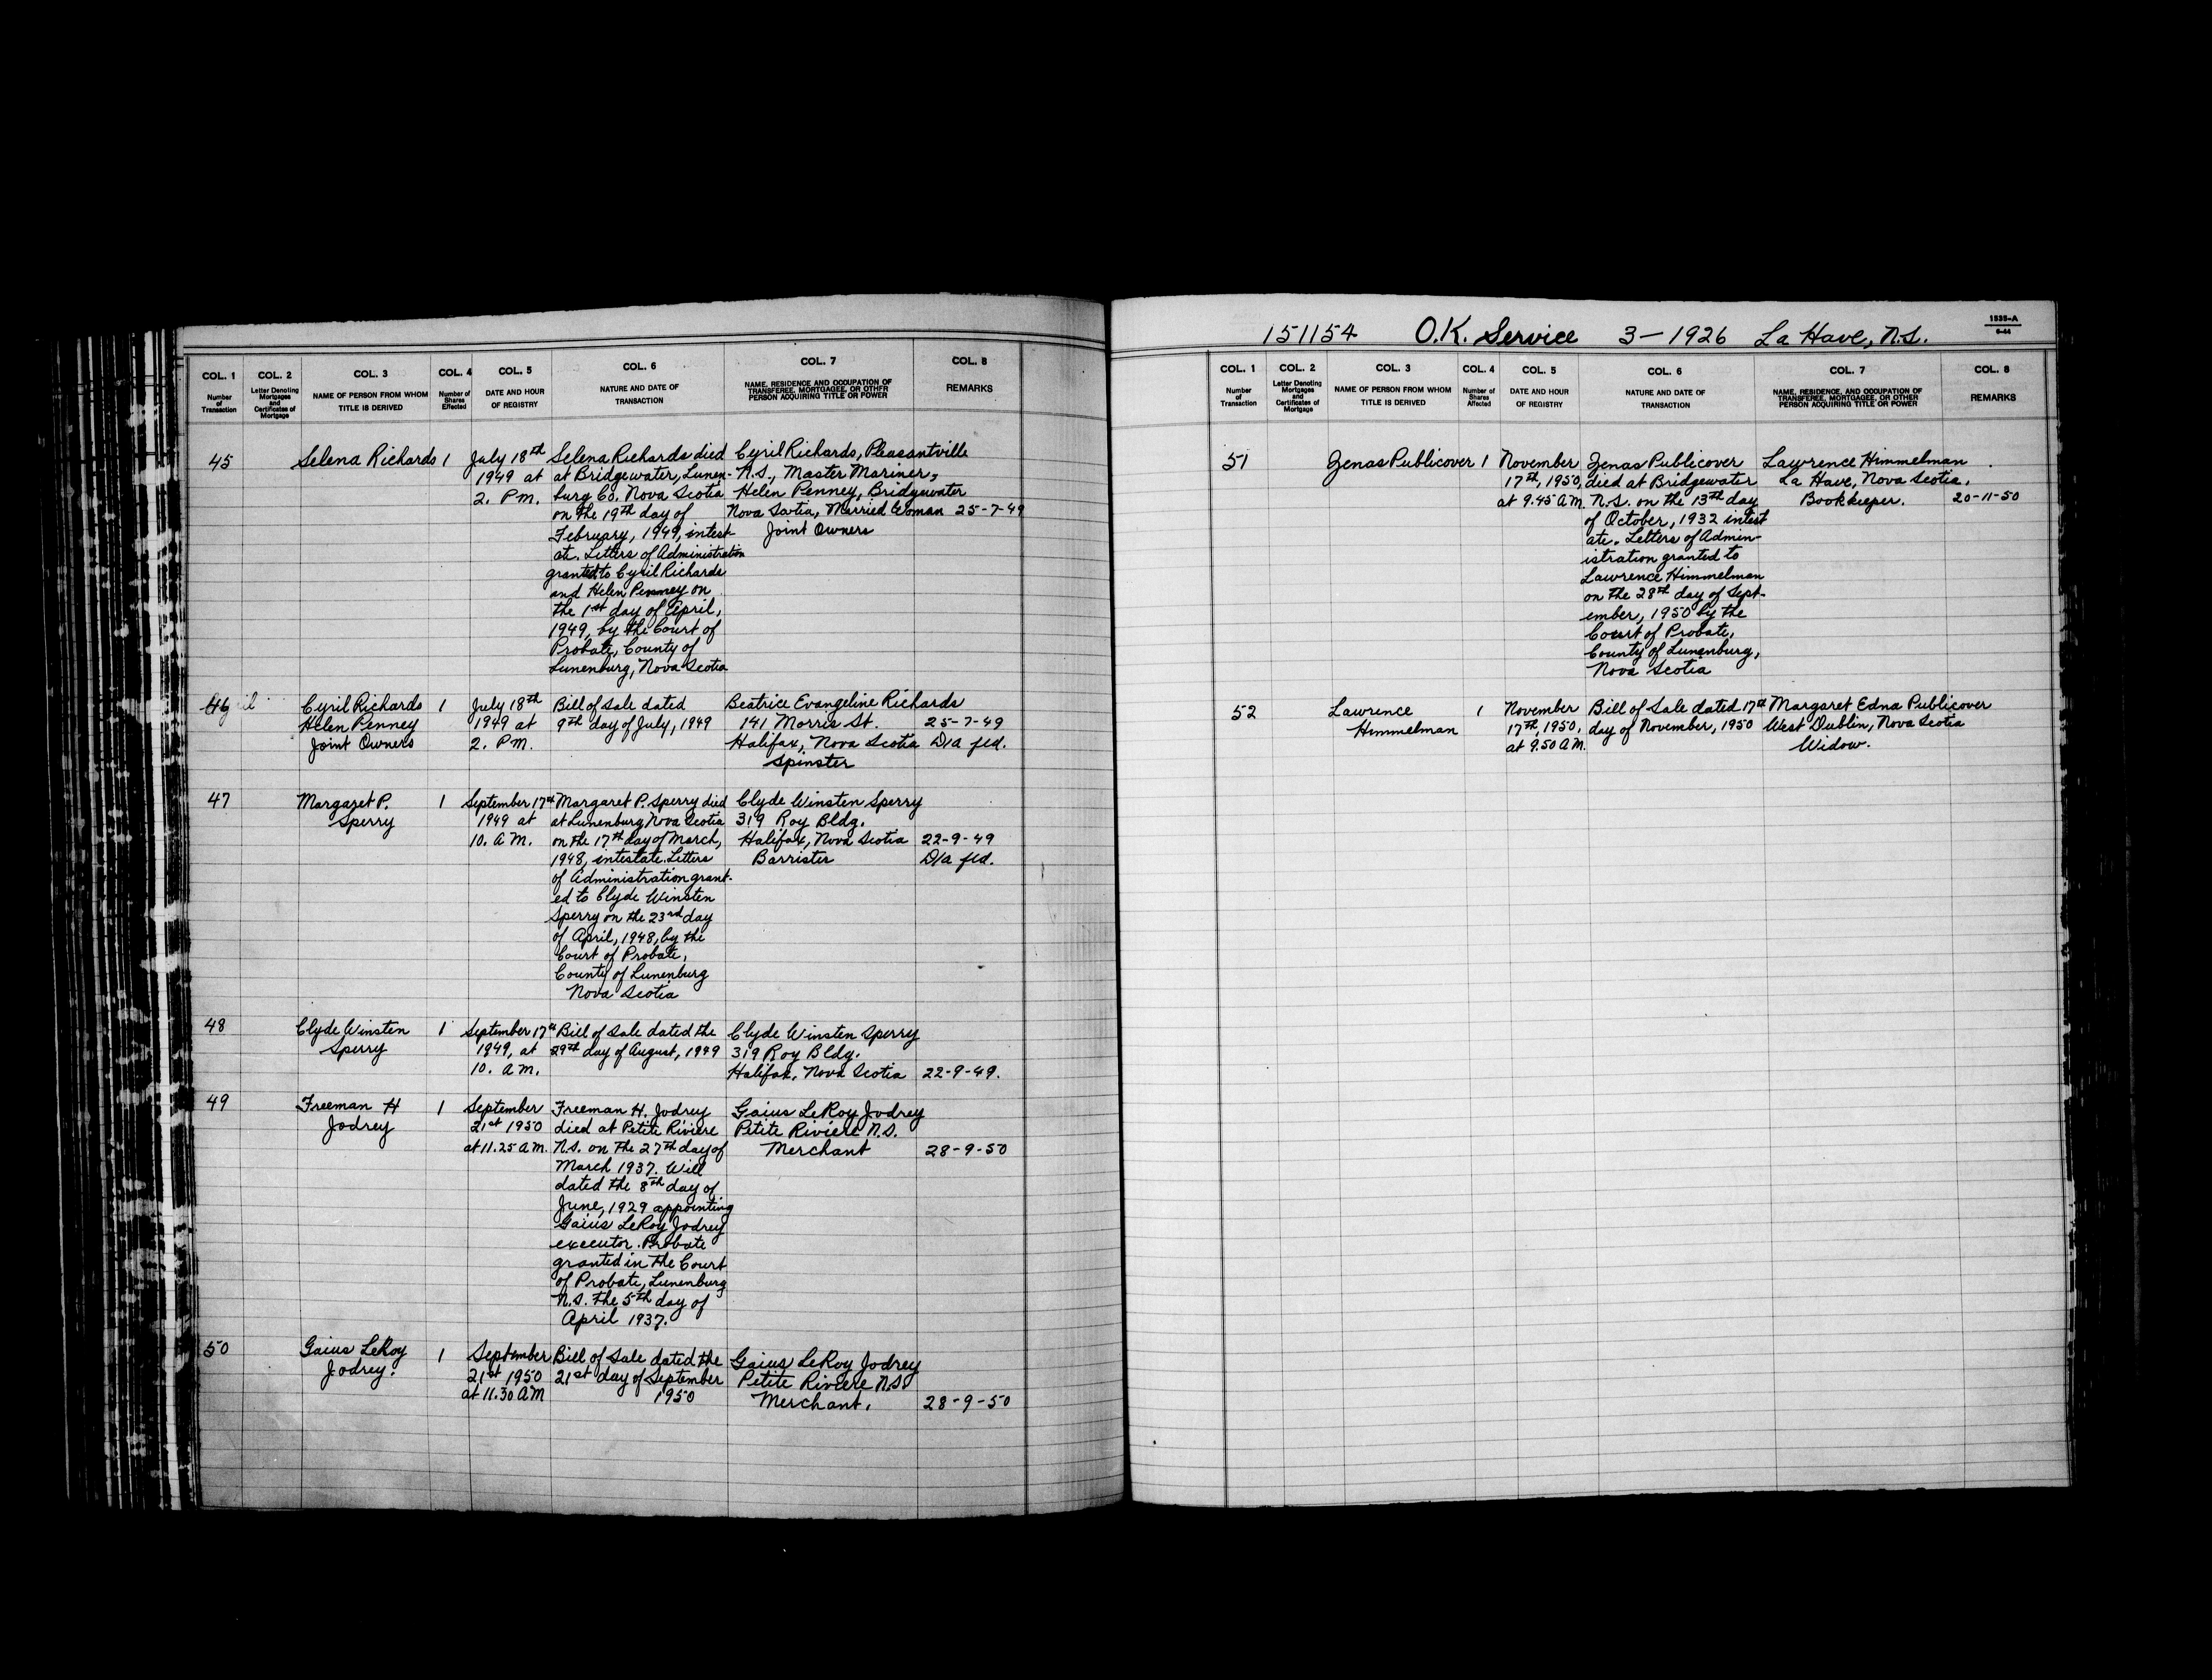 COL. 1 COL. 2 COL. 3 COL. 4 COL. 5 COL. 6 COL. 7 COL. 8
Number of Transaction
Letter Denoting Mortgages and Certificates of Mortgage
NAME OF PERSON FROM WHOM TITLE IS DERIVED
Number of Shares Affected
DATE AND HOUR OF REGISTRY
NATURE AND DATE OF TRANSACTION
NAME, RESIDENCE AND OCCUPATION OF TRANSFEREE, MORTGAGEE, OR OTHER PERSON ACQUIRING TITLE OR POWER
REMARKS
45
Selena Richards
1
July 18th
1949 at
2. P.M.
Selena Richards died
at Bridgewater, Lunen-
burg Co. Nova Scotia
on the 19th day of
February, 1949, intest-
ate. Letters of Administration
granted to Cyril Richards
and Helen Penney on
the 1st day of April,
1949, by the Court of
Probate, County of
Lunenburg, Nova Scotia
Cyril Richards, Pleasantville
N.S., Master Mariner,
Helen Penney, Bridgewater
Nova Scotia, Married Woman
Joint Owners
25-7-49
46
Cyril Richards
Helen Penney
Joint Owners
1
July 18th
1949 at
2. P.M.
Bill of Sale dated
9th day of July, 1949
Beatrice Evangeline Richards
141 Morris St.
Halifax, Nova Scotia
Spinster
25-7-49
D/a fld.
47
Margaret P.
Sperry
1
September 17th
1949 at
10. A.M.
Margaret P. Sperry died
at Lunenburg Nova Scotia
on the 17th day of March,
1948, intestate. Letters
of Administration grant-
ed to Clyde Winsten
Sperry on the 23rd day
of April, 1948, by the
Court of Probate,
County of Lunenburg
Nova Scotia
Clyde Winsten Sperry
319 Roy Bldg.
Halifax, Nova Scotia
Barrister
22-9-49
D/a fld.
48
Clyde Winsten
Sperry
1
September 17th
1949, at
10. A.M.
Bill of Sale dated the
29th day of August, 1949
Clyde Winsten Sperry
319 Roy Bldg.
Halifax, Nova Scotia
22-9-49.
49
Freeman H
Jodrey
1
September
21st 1950
at 11.25 A.M.
Freeman H. Jodrey
died at Petite Riviere
N.S. on the 27th day of
March 1937. Will
dated the 8th day of
June, 1929 appointing
Gaius LeRoy Jodrey
executor. Probate
granted in the Court
of Probate, Lunenburg
N.S. the 5th day of
April 1937.
Gaius LeRoy Jodrey
Petite Riviere N.S.
Merchant
28-9-50
50
Gaius LeRoy
Jodrey.
1
September
21st 1950
at 11.30 A.M
Bill of Sale dated the
21st day of September
1950
Gaius LeRoy Jodrey
Petite Riviere N.S.
Merchant.
28-9-50
1535-A
6-44
151154 O.K. Service 3-1926 La Have, N.S.
COL. 1 COL. 2 COL. 3 COL. 4 COL. 5 COL. 6 COL. 7 COL. 8
Number of Transaction
Letter Denoting Mortgages and Certificates of Mortgage
NAME OF PERSON FROM WHOM TITLE IS DERIVED
Number of Shares Affected
DATE AND HOUR OF REGISTRY
NATURE AND DATE OF TRANSACTION
NAME, RESIDENCE, AND OCCUPATION OF TRANSFEREE, MORTGAGEE, OR OTHER PERSON ACQUIRING TITLE OR POWER
REMARKS
51
Zenas Publicover
1
November
17th, 1950,
at 9.45 A.M.
Zenas Publicover
died at Bridgewater
N.S. on the 13th day
of October, 1932 intest
ate. Letters of Admin-
istration granted to
Lawrence Himmelman
on the 28th day of Sept-
ember, 1950 by the
Court of Probate,
County of Lunenburg,
Nova Scotia
Lawrence Himmelman
La Have, Nova Scotia.
Bookkeeper.
20-11-50
52
Lawrence
Himmelman
1
November
17th, 1950,
at 9.50 A.M.
Bill of Sale dated 17th
day of November, 1950
Margaret Edna Publicover
West Dublin, Nova Scotia
Widow.